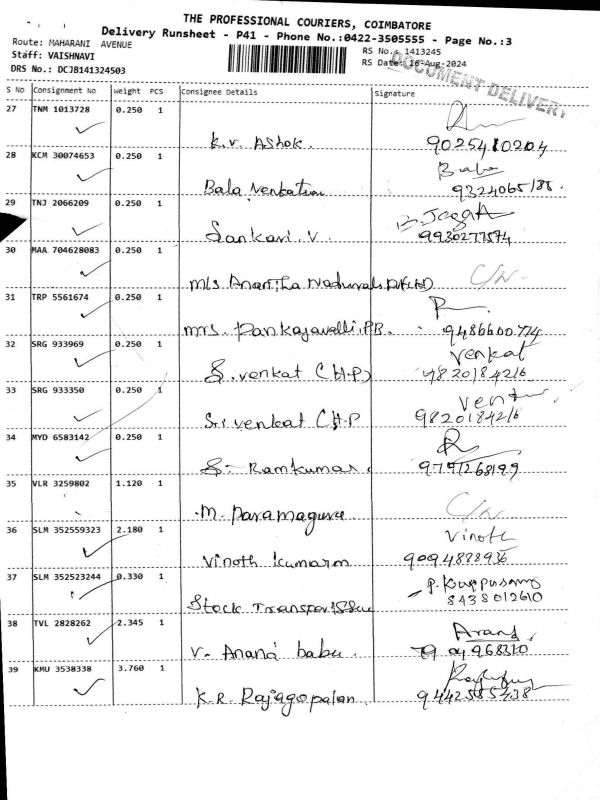 THE PROFESSIONAL COURIERS, COIMBATORE
Delivery Runsheet - P41 - Phone No.:0422-3505555 - Page No.:3
Route: MAHARANI AVENUE
Staff: VAISHNAVI
DRS No.: DCJB141324503
RS No.: 1413245
RS Date: 16-Aug-2024
DOCUMENT DELIVERY
S NO Consignment No Weight PCS Consignee Details Signature
27 TNM 1013728 0.250 1
K.V. Ashok. 9025410204
28 KCM 30074653 0.250 1
Bala
29 TNJ 2066209 0.250 1
Sankari. V. 9930277574
30 MAA 704628083 0.250 1
M/s C/N
31 TRP 5561674 0.250 1
Mrs. Pankajavalli.P.B. 9486600774
32 SRG 933969 0.250 1 Venkat
S. Venkat (H.P) 9820184216
33 SRG 933350 0.250 1
Sri Venkat (H.P 9820184216
34 MYD 6583142 0.250 1
S. Ramkumar.
35 VLR 3259802 1.120 1
M. Paramaguru C/N
36 SLM 352559323 2.180 1 Vinoth
Vinoth Kumarm 9094888936
37 SLM 352523244 0.330 1 P. Kuppusamy
Stock 8438012610
38 TVL 2828262 2.345 1 Anand
V. Anand babu.
39 KMU 3538338 3.760 1
K.R. Rajagopalan. 9442585438